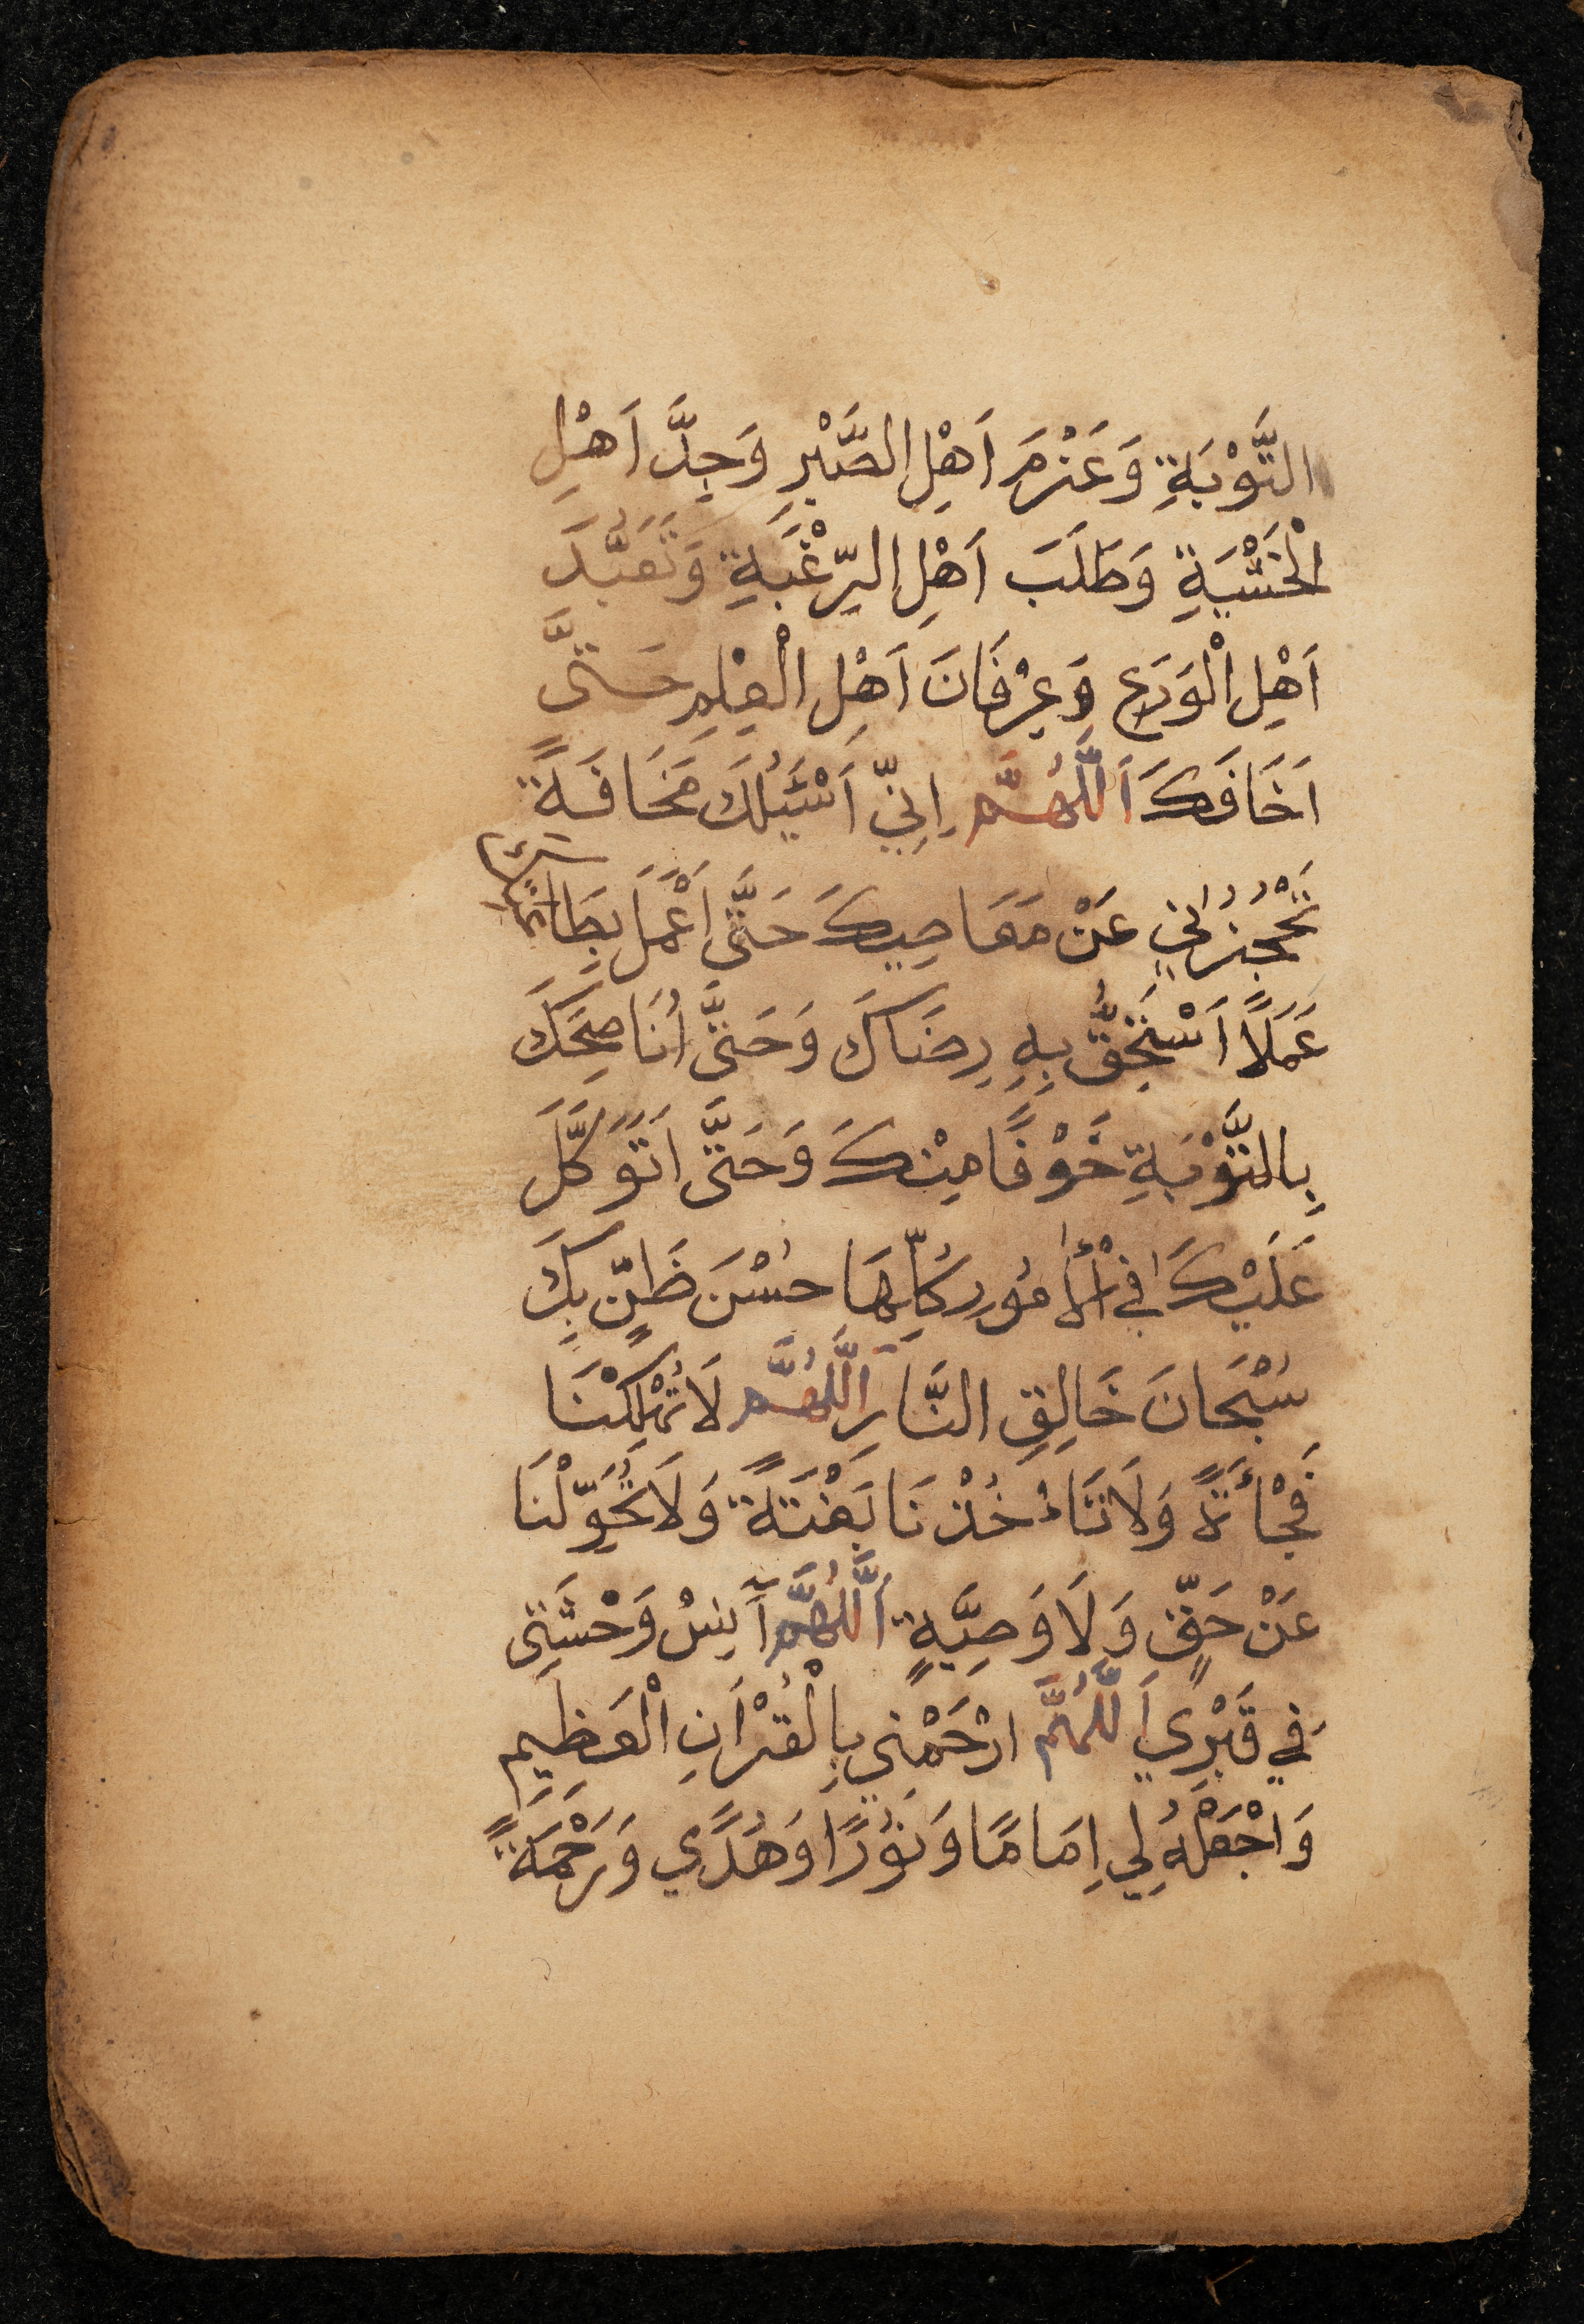 التَّوْبَةِ وَعَزْمَ اَهْلِ الصَّبْرِ وَجِدَّ اَهْلِ
الْخَشْيَةِ وَطَلَبَ اَهْلِ الرَّغْبَةِ وَتَعَبُّدَ
اَهْلِ الْوَرَعِ وَعِرْفَانَ اَهْلِ الْعِلْمِ حَتَّى
اَخَافَكَ اَللّٰهُمَّ اِنِّي اَسْئَلُكَ مَخَافَةً
تَحْجُزُنِي عَنْ مَعَاصِيكَ حَتَّى اَعْمَلَ بِطَاعَتِكَ
عَمَلًا اَسْتَحِقُّ بِهِ رِضَاكَ وَحَتَّى اُنَاصِحَكَ
بِالتَّوْبَةِ خَوْفًا مِنْكَ وَحَتَّى اَتَوَكَّلَ
عَلَيْكَ فِي الْأُمُورِ كُلِّهَا حُسْنَ ظَنٍّ بِكَ
سُبْحَانَ خَالِقِ النَّارِ اَللّٰهُمَّ لَا تُهْلِكْنَا
فَجْأَةً وَلَا تَاءْخُذْنَا بَغْتَةً وَلَا تُحَوِّلْنَا
عَنْ حَقٍّ وَلَا وَصِيَّةٍ اَللّٰهُمَّ آنِسْ وَحْشَتِي
فِي قَبْرِي اَللّٰهُمَّ ارْحَمْنِي بِالْقُرْاَنِ الْعَظِيمِ
وَاجْعَلْهُ لِي اِمَامًا وَنُوْرًا وَهُدًي وَرَحْمَةً